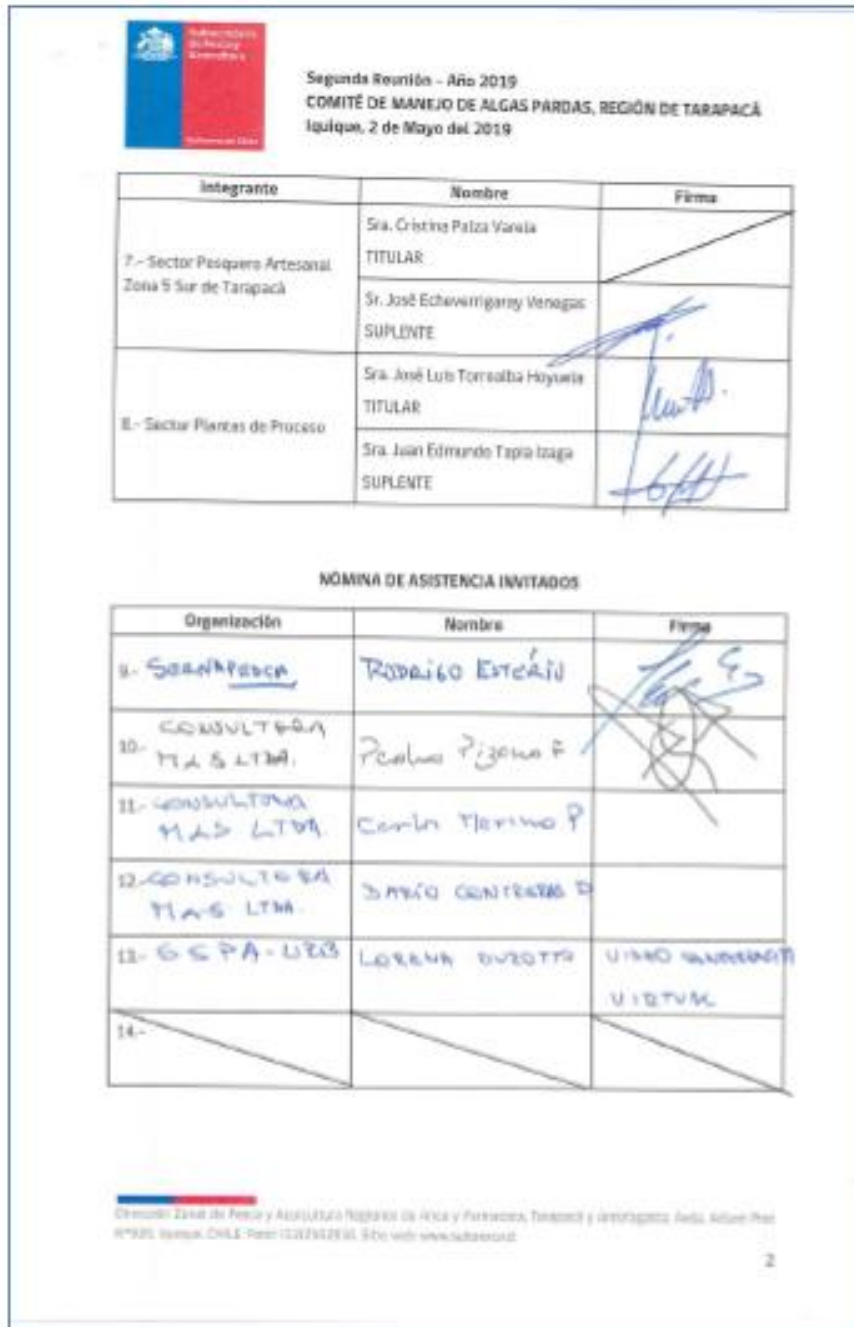 Subsecretaría
de Pesca y
Acuicultura
Gobierno de Chile
Segunda Reunión – Año 2019
COMITÉ DE MANEJO DE ALGAS PARDAS, REGIÓN DE TARAPACÁ
Iquique, 2 de Mayo del 2019
Integrante Nombre Firma
7.- Sector Pesquero Artesanal
Zona 5 Sur de Tarapacá
Sra. Cristina Palza Varela
TITULAR
Sr. José Echeverrigaray Venegas
SUPLENTE
8.- Sector Plantas de Proceso
Sra. José Luis Torrealba Hoyuela
TITULAR
Sra. Juan Edmundo Tapia Izaga
SUPLENTE
NÓMINA DE ASISTENCIA INVITADOS
Organización Nombre Firma
9.- SERNAPESCA RODRIGO
10.- CONSULTORA
MAS LTDA. Pedro Pizarro F
11.- CONSULTORA
MAS LTDA Carlos Merino P
12.- CONSULTORA
MAS LTDA. DARÍO CONTRERAS D
13.- LORENA VIDEO
VIRTUAL
14.-
Dirección Zonal de Pesca y Acuicultura Regiones de Arica y Parinacota, Tarapacá y Antofagasta, Avda. Arturo Prat
Iquique, CHILE. Sitio web: www.subpesca.cl
2